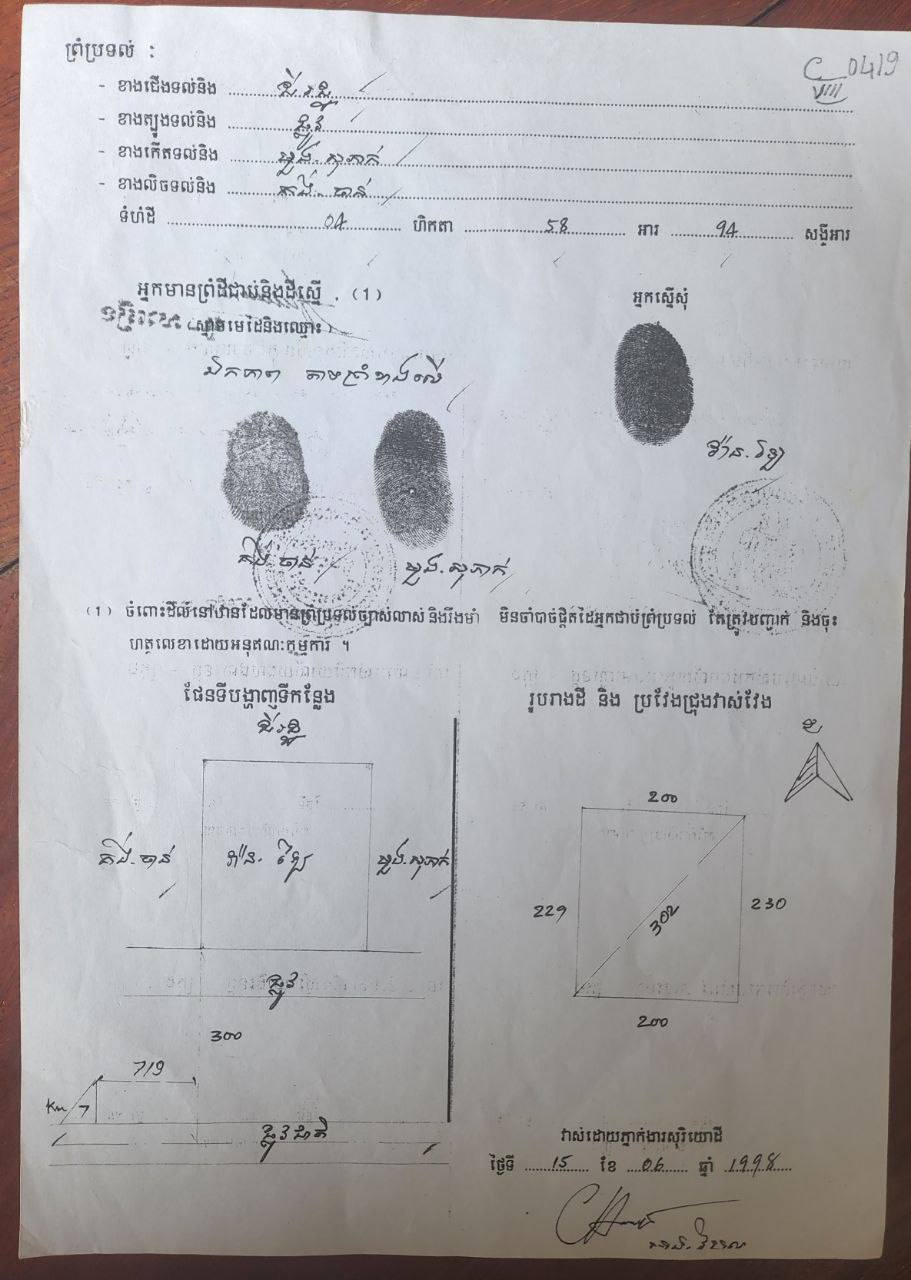 ព្រំប្រទល់ :
C 0419
VIII
- ខាងជើងទល់និង
- ខាងត្បូងទល់និង ផ្លូវ
- ខាងកើតទល់និង ម្លូង.សុភាក់
- ខាងលិចទល់និង គង់.ចាន់
ទំហំដី 04 ហិកតា 58 អារ 94 សង់ទីអារ
អ្នកមានព្រំដីជាប់និងដីស្នើ . (1)
អ្នកស្នើសុំ
(ស្នាមមេដៃនិងឈ្មោះ)
ឯកភាព តាមព្រំខាងលើ
វ៉ាន.
គង់.ចាន់
ម្លូង.សុភាក់
(1) ចំពោះដីលំនៅឋានដែលមានព្រំប្រទល់ច្បាស់លាស់ និងរឹងមាំ មិនចាំបាច់ផ្តិតដៃអ្នកជាប់ព្រំប្រទល់ តែត្រូវបញ្ជាក់ និងចុះ
ហត្ថលេខាដោយអនុគណៈកម្មការ ។
ផែនទីបង្ហាញទីកន្លែង
រូបរាងដី និង ប្រវែងជ្រុងវាស់វែង
200
គង់.ចាន់
វ៉ាន.
ម្លូង.សុភាក់
229
302
230
ផ្លូវ
200
300
719
Km 7
ផ្លូវជាតិ
វាស់ដោយភ្នាក់ងារសុរិយោដី
ថ្ងៃទី 15 ខែ 06 ឆ្នាំ 1998